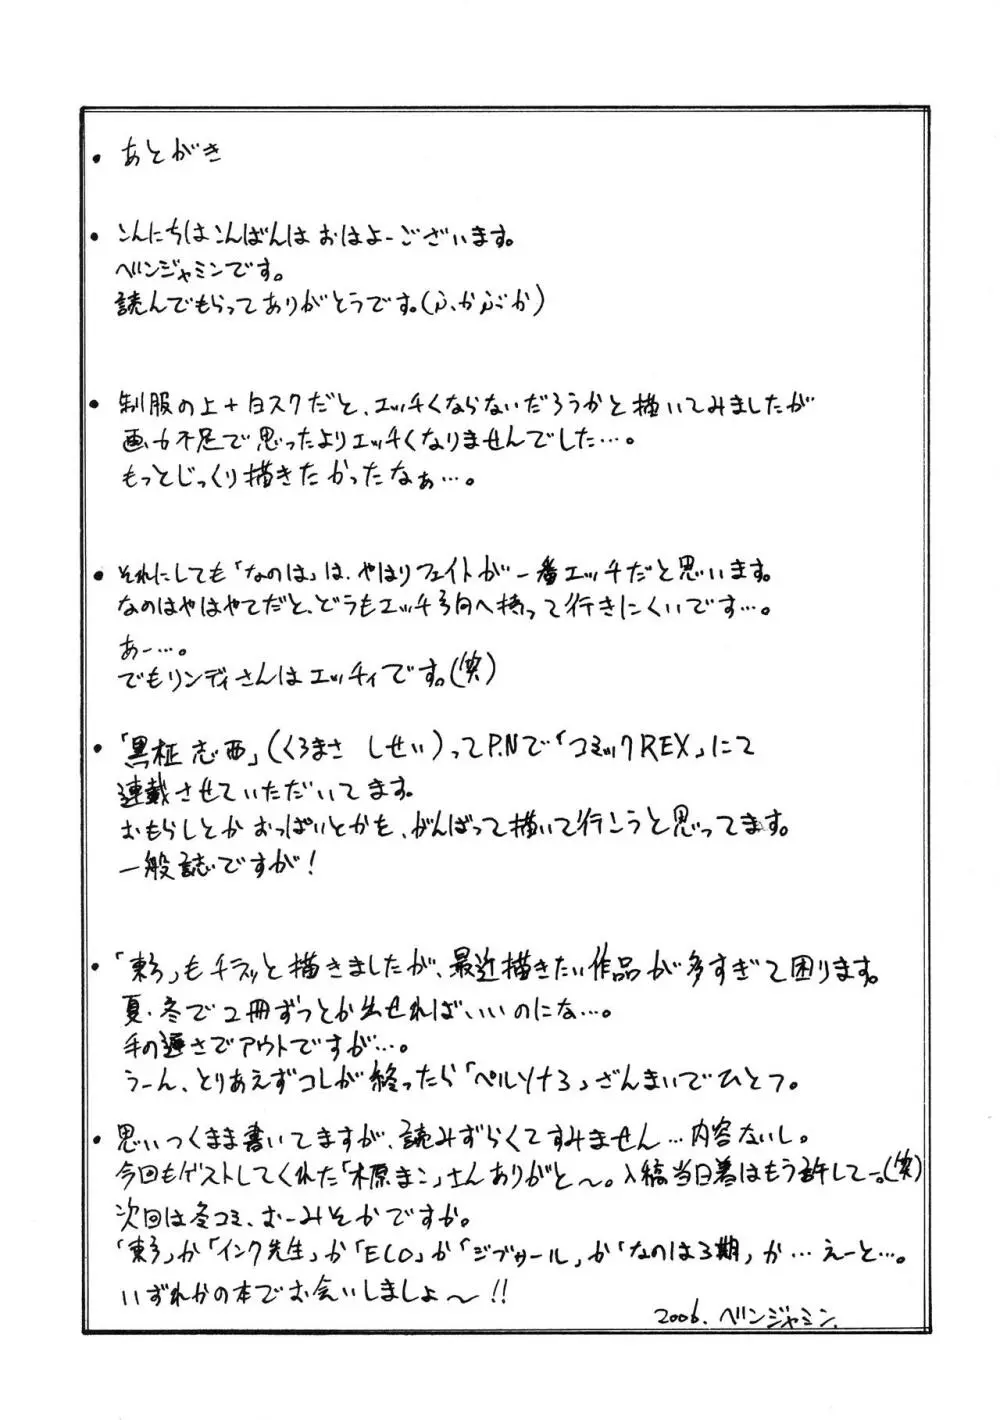 ・あとがき
・こんにちはこんばんはおはよーございます。
ベンジャミンです。
読んでもらってありがとうです。(ふかぶか)
・制服の上+白スクだと、エッチくならないだろうかと描いてみましたが
画力不足で思ったよりエッチくなりませんでした…。
もっとじっくり描きたかったなぁ…。
・それにしても「なのは」は、やはりフェイトが一番エッチだと思います。
なのはやはやてだと、どうもエッチ方向へ持って行きにくいです…。
あー…。
でもリンディさんはエッチィです。(笑)
・「黒柾志西」(くろまさ しせい)ってP.Nで「コミックREX」にて
連載させていただいてます。
おもらしとかおっぱいとかも、がんばって描いて行こうと思ってます。
一般誌ですが!
・「東方」もチラッと描きましたが、最近描きたい作品が多すぎて困ります。
夏・冬で2冊ずつとか出せればいいのにな…。
手の遅さでアウトですが…。
うーん、とりあえずコレが終ったら「ペルソナ3」ざんまいでひとつ。
・思いつくまま書いてますが、読みずらくてすみません…内容ないし。
今回もゲストしてくれた「木原まこ」さんありがと〜。入稿当日着はもう許してー。(笑)
次回は冬コミ、おーみそかですか。
「東方」か「インク先生」か「ECO」か「ジブリール」か「なのは3期」か…えーと…。
いずれかの本でお会いしましょ〜!!
2006. ベンジャミン.